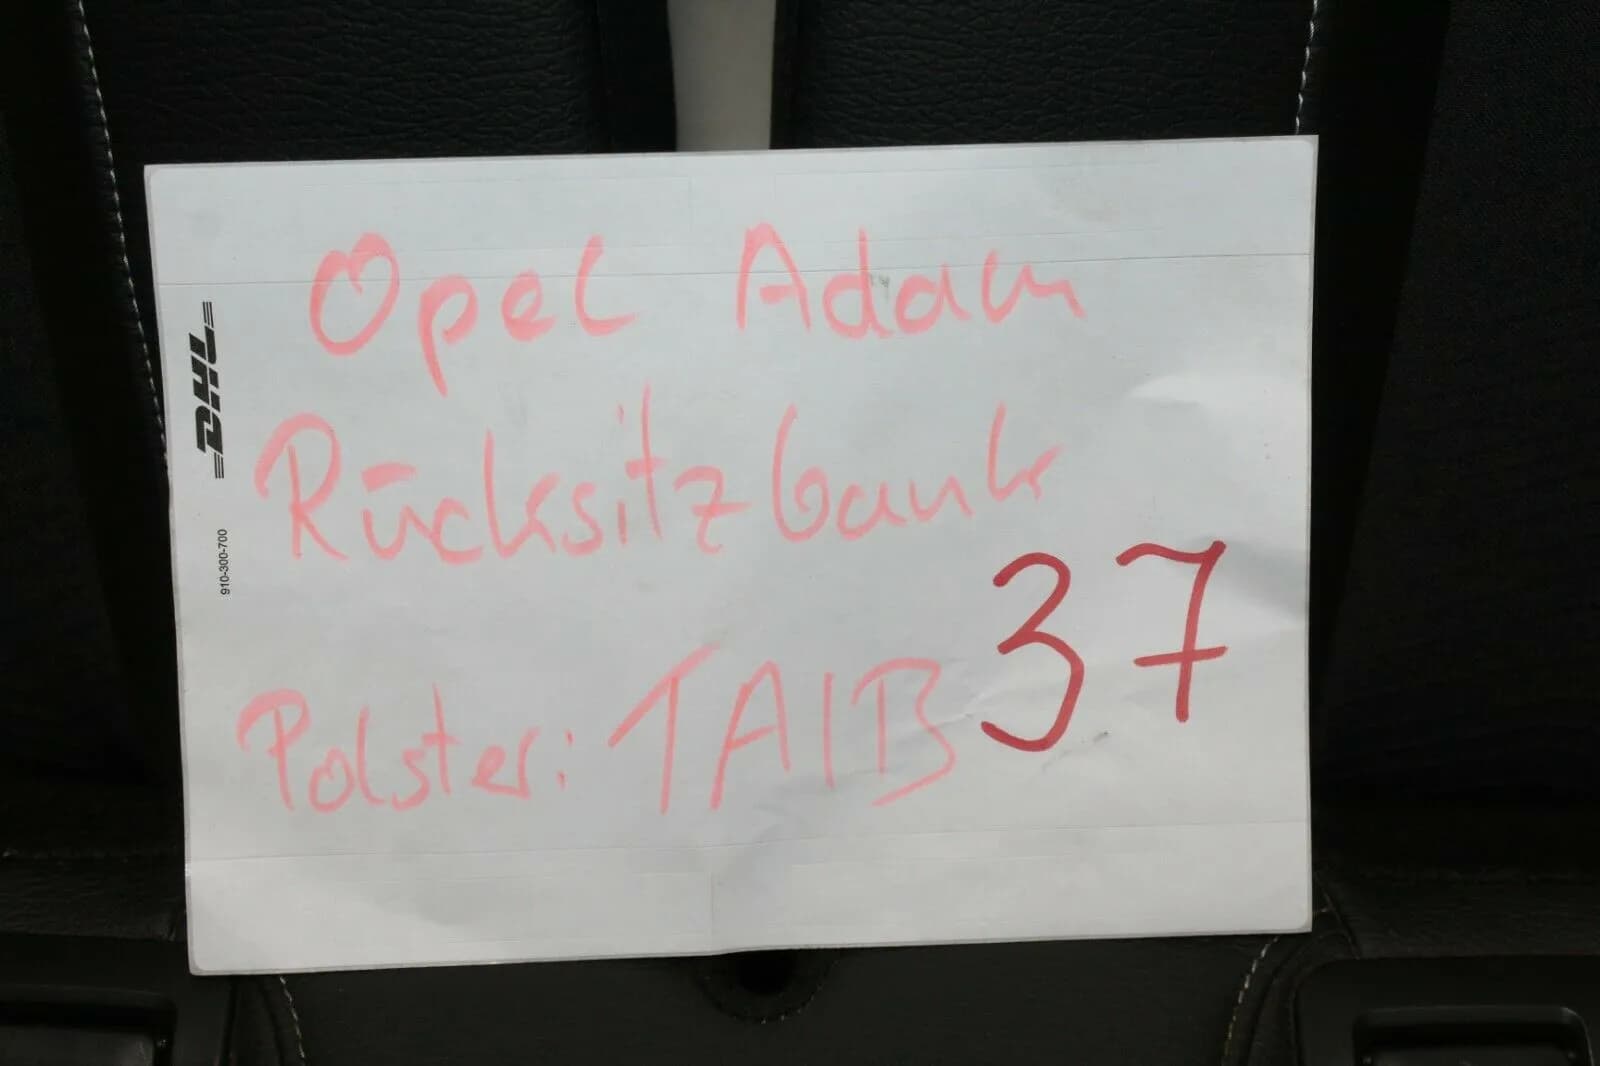 Opel Adam
Rücksitzbank
37
Polster: TAIB
DHL
910-300-700